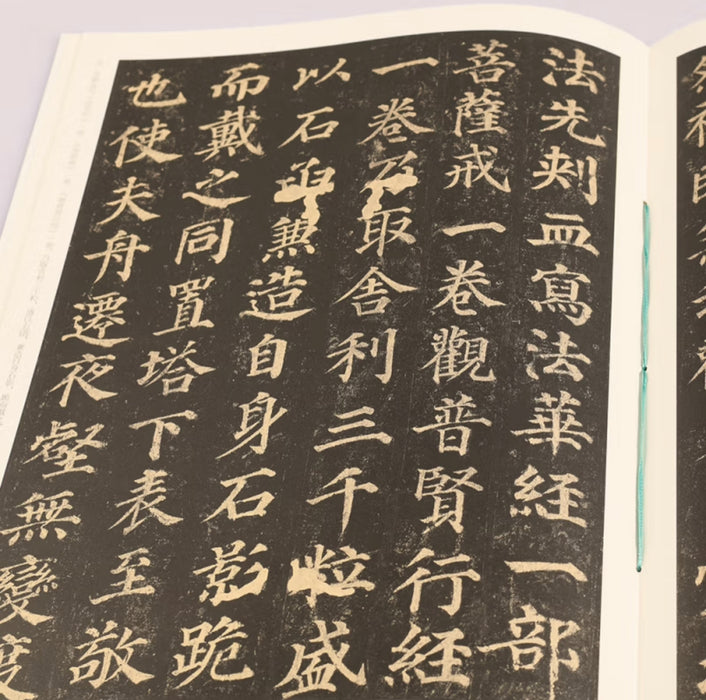 法先刺血寫法華経一部
菩薩戒一卷觀普賢行経
一卷乃取舍利三千粒盛
以石函兼造自身石影跪
而戴之同置塔下表至敬
也使夫舟遷夜壑無變度